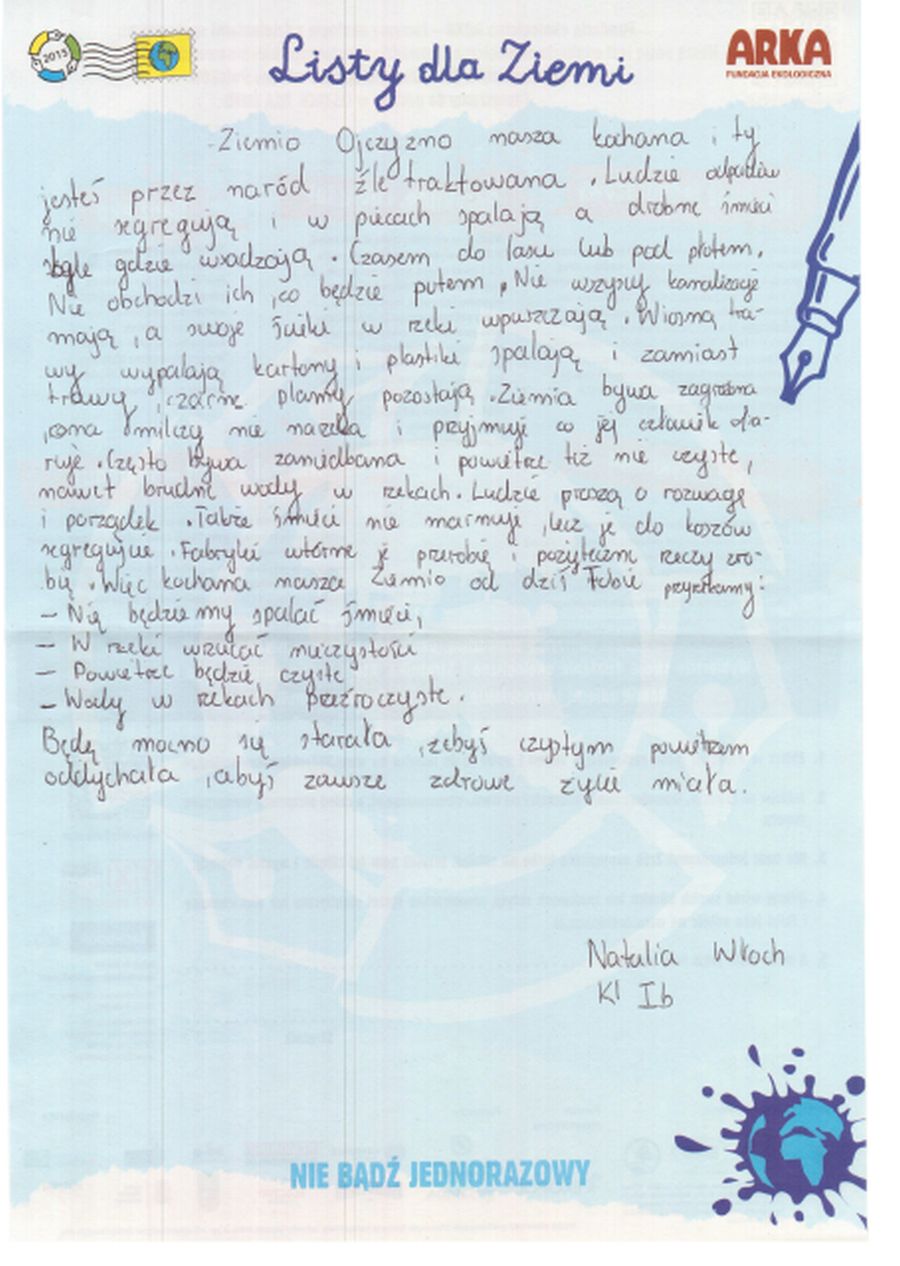 2013
Listy dla Ziemi
ARKA
FUNDACJA EKOLOGICZNA
Ziemio Ojczyzno nasza kochana i ty
jesteś przez naród źle traktowana. Ludzie odpadów
nie segregują i w piecach spalają a drobne śmieci
byle gdzie wsadzają. Czasem do lasu lub pod płotem.
Nie obchodzi ich, co będzie potem. Nie wszyscy kanalizację
mają, a swoje ścieki w rzeki wpuszczają. Wiosną tra-
wy wypalają kartony i plastiki spalają i zamiast
trawy, czarne plamy pozostają. Ziemia bywa zagrożona
, ona milczy nie narzeka i przyjmuje co jej człowiek da-
ruje. Często bywa zaniedbana i powietrze też nie czyste,
nawet brudne wody w rzekach. Ludzie proszą o rozwagę
i porządek. Także śmieci nie marnuje, lecz je do koszów
segregujcie. Fabryki wtórne je przerobią i pożyteczne rzeczy zro-
bią. Więc kochana nasza Ziemio od dziś Tobie przyrzekamy:
- Nie będziemy spalać śmieci,
- W rzeki wrzucać nieczystości
- Powietrze będzie czyste
- Wody w rzekach przeźroczyste.
Będę mocno się starała, żebyś czystym powietrzem
oddychała, abyś zawsze zdrowe życie miała.
Natalia Włoch
Kl Ib
NIE BĄDŹ JEDNORAZOWY